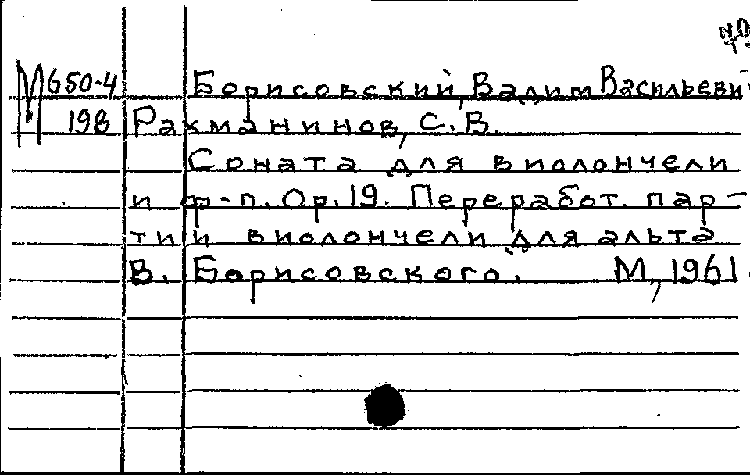 М650-4 Борисовский, Вадим Васильеви
198 Рахманинов, С.В.
Соната для виолончели
и ф-п. Ор.19. Переработ. пар-
тии виолончели для альта
В. Борисовского. М, 1961